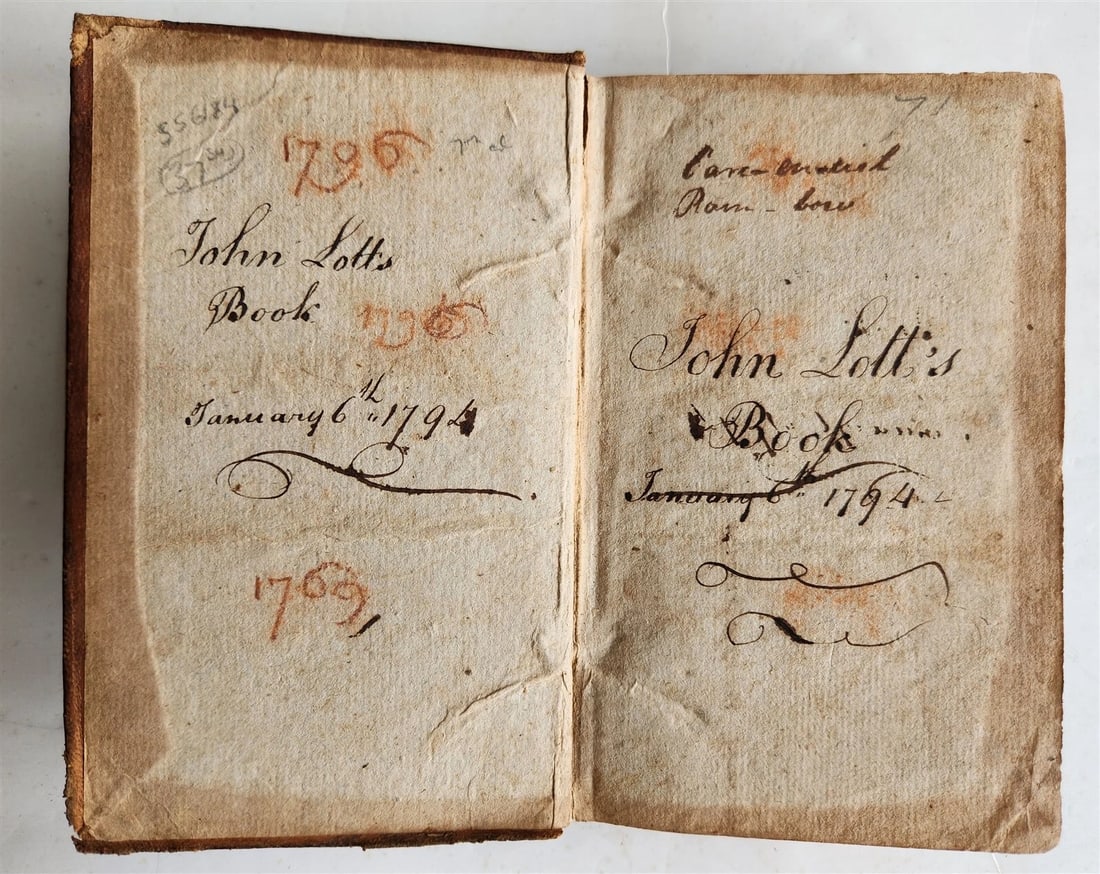 556184
1796
John Lott's
Book
1796
January 6th 1794
1769
71
Ram - bow
John Lott's
Book
January 6th 1794